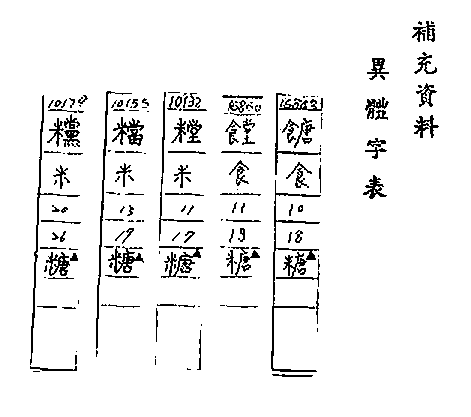 補充資料
異體字表
餹
食
10
18
糖▲
饄
食
11
19
糖▲
糛
米
11
17
糖▲
米
13
19
糖▲
米
20
26
糖▲